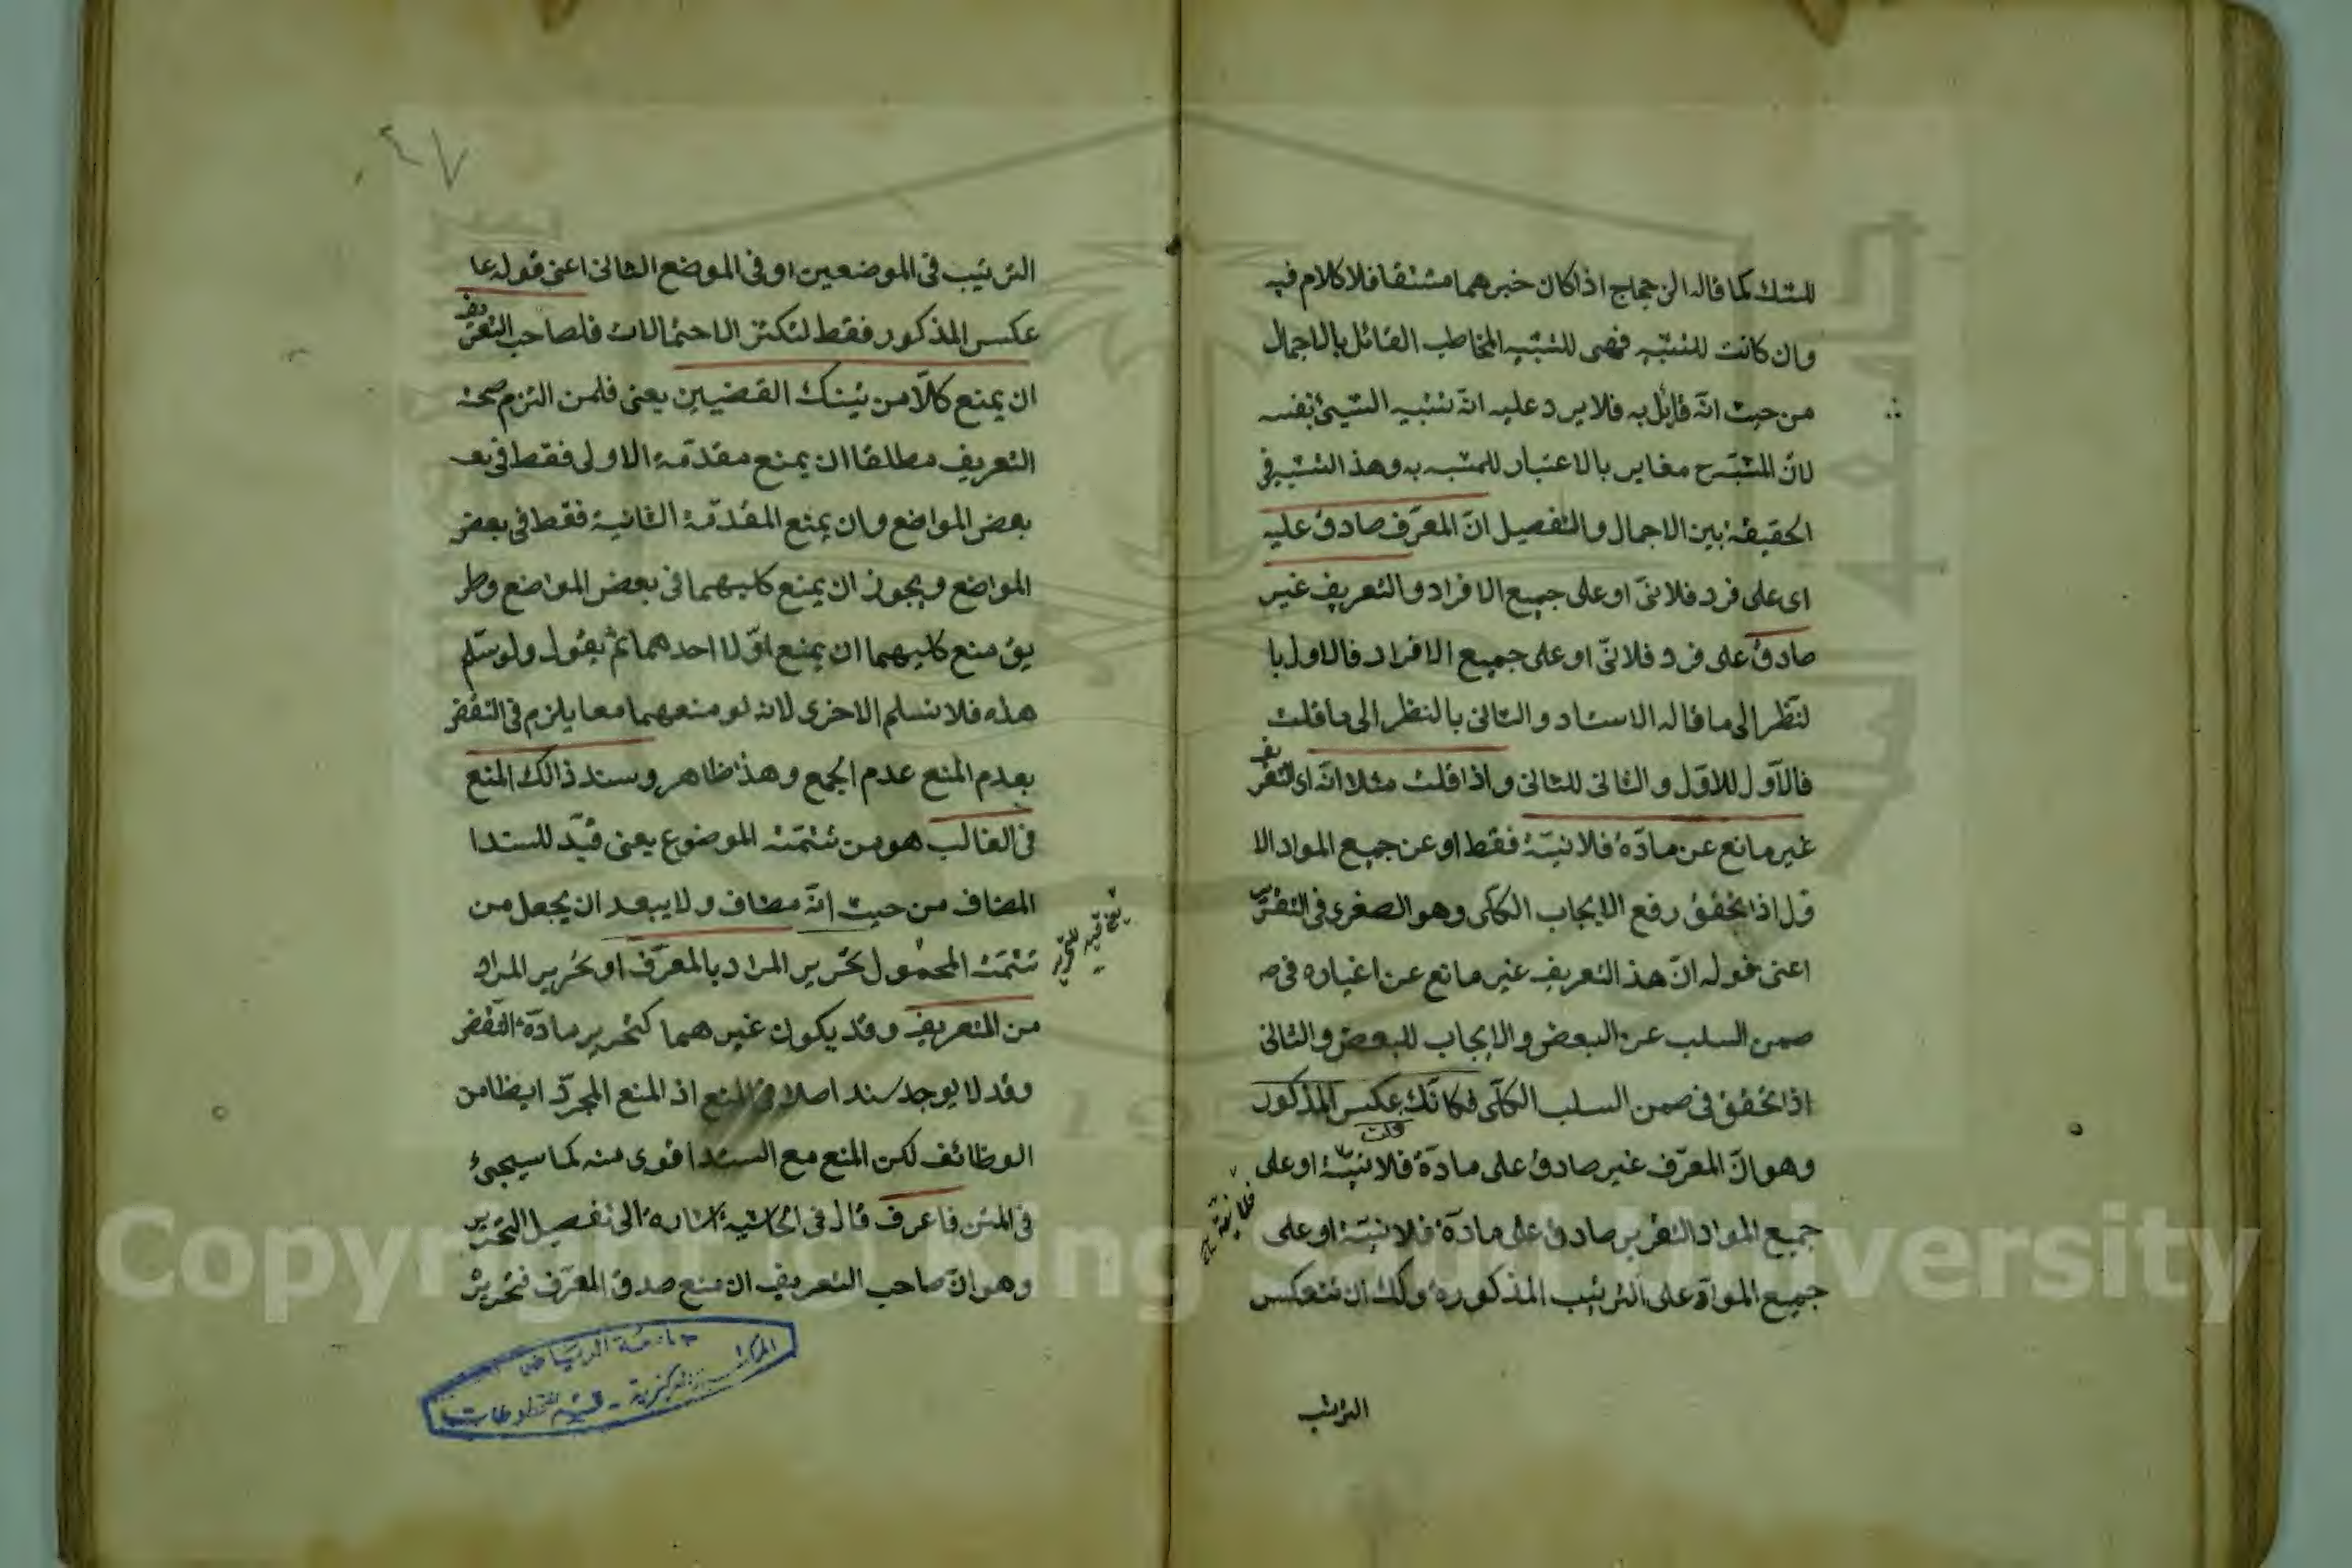 للشك كما قاله الزجاج اذا كان خبرهما مشتقا فلا كلام فيه
وان كانت للتشبيه فهى للتشبيه المخاطب القائل بالاجمال
من حيث انّه قائل به فلا يرد عليه انّه تشبيه الشيئ بنفسه
لانّ المشبّه ح مغاير بالاعتبار للمشبه به وهذا التشبيه فى
الحقيقة بين الاجمال والتفصيل انّ المعرّف صادق عليه
اى على فرد فلانىّ او على جميع الافراد والتعريف غير
صادق على فرد فلانىّ او على جميع الافراد فالاول با
لنّظر الى ما قاله الاستاد والثانى بالنظر الى ما قلت
فالاوّل للاوّل والثانى للثانى واذا قلت مثلا انّه اى التعريف
غير مانع عن مادّة فلانيّة فقط او عن جميع المواد الا
ول اذا تحقق رفع الايجاب الكلّى وهو الصغرى فى التقرير
اعنى قوله انّ هذ التعريف غير مانع عن اغياره فى ص
ضمن السلب عن البعض والايجاب للبعض والثانى
اذا تحقق فى ضمن السلب الكلّى فكانّك عكس المذكور
قلت
وهو انّ المعرّف غير صادق على مادّة فلانيّة او على
جميع المواد التقرير صادق على مادّة فلانيّة او على
جميع الموادّ على الترتيب المذكورة وكك ان تنعكس
الترتيب
٤٧
الترتيب فى الموضعين او فى الموضع الثانى اعنى قوله عا
عكس المذكور فقط لتكثر الاحتمالات فلصاحب التعريف
ان يمنع كلّا من تينك القضيين يعنى فلمن التزم صحة
التعريف مطلقا ان يمنع مقدّمة الاولى فقط فى بعـ
بعض المواضع وان يمنع المقدّمة الثانية فقط فى بعض
المواضع ويجوز ان يمنع كليهما فى بعض المواضع وطر
يق منع كليهما ان يمنع اوّلا احدهما ثم يقول ولو سلّم
هذه فلا نسلم الاخرى لانه لو منعهما معا يلزم فى النقض
بعدم المنع عدم الجمع وهذا ظاهر وسند ذالك المنع
فى الغالب هو من تتمّة الموضوع يعنى قيّد للسند ا
المضاف من حيث انّه مضاف ولا يبعد ان يجعل من
تتمّة المحمول تحرير المراد بالمعرّف او تحرير المراد
من التعريف وقد يكون غيرهما كتحرير مادّة النقض
وقد لا يوجد سند اصلا فى المنع اذ المنع المجرّد ايظا من
الوظائف لكن المنع مع السند اقوى منه كما سيجئ
فى المتن فاعرف قال فى الحاشية اشارة الى تفصيل التحرير
وهو انّ صاحب التعريف ان منع صدق المعرّف فتحرير
جامعة الرياض
المكتبة المركزية - قسم المخطوطات
Copyright © King Saud University